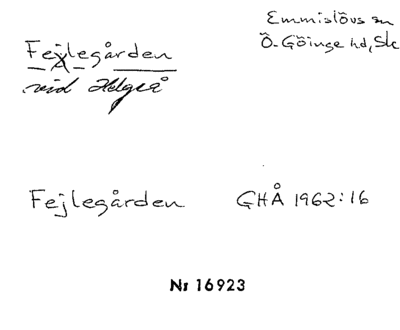 Fejlegården
Emmislövs sn
Ö. Göinge hd, Sk
vid Helgeå
Fejlegården GHÅ 1962:16
Nr 16923